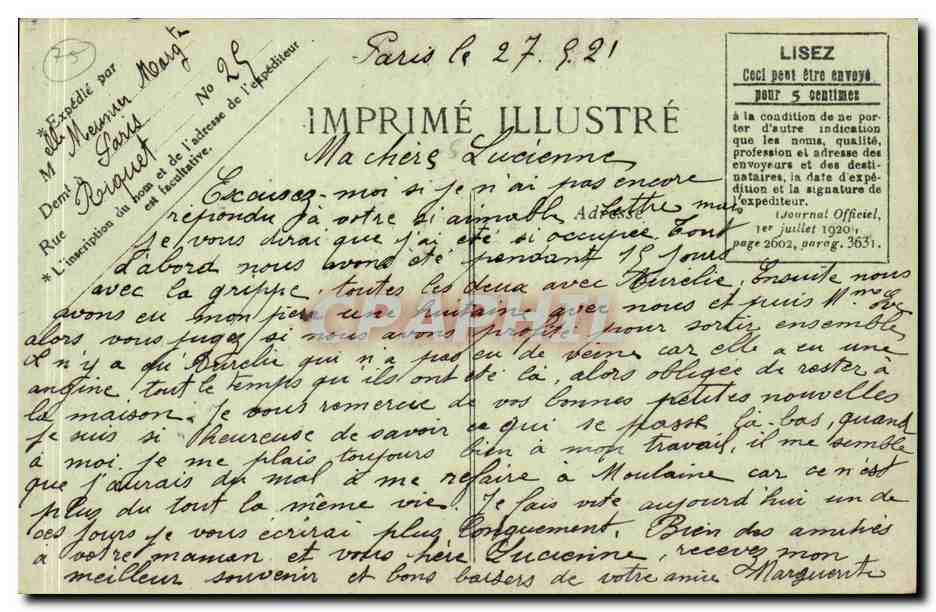 75
Paris le 27.9.21
*Expédié par
Melle Meunier Margte
Demt à Paris
Rue Roquet No 25
*L'inscription du nom et de l'adresse de l'expéditeur
est facultative.
LISEZ
Ceci peut être envoyé
pour 5 centimes
à la condition de ne por-
ter d'autre indication
que les noms, qualité,
profession et adresse des
envoyeurs et des desti-
nataires, la date d'expé-
dition et la signature de
l'expéditeur.
(Journal Officiel,
1er juillet 1920,
page 2602, parag. 3631.
IMPRIMÉ ILLUSTRÉ
Adresse
Ma chère Lucienne
Excusez-moi si je n'ai pas encore
répondu à votre si aimable lettre mais
je vous dirai que j'ai été si occupée Tout
d'abord nous avons été pendant 15 jours
avec la grippe, toutes les deux avec Aurélie, Ensuite nous
avons eu mon père un huitaine avec nous et puis Mme
alors vous jugez si nous avons profité pour sortir ensemble
il n'y a qu'Aurélie qui n'a pas eu de veine car elle a eu une
angine tout le temps qu'ils ont été là, alors obligée de rester à
la maison. Je vous remercie de vos bonnes petites nouvelles
je suis si heureuse de savoir ce qui se passe là-bas, quand
à moi je me plais toujours bien à mon travail, il me semble
que j'aurais du mal à me refaire à Moulaine car ce n'est
plus du tout la même vie. Je fais vite aujourd'hui un de
ces jours je vous écrirai plus longuement. Bien des amitiés
à votre maman et vous chère Lucienne, recevez mon
meilleur souvenir et bons baisers de votre amie Marguerite
CPAPHIL